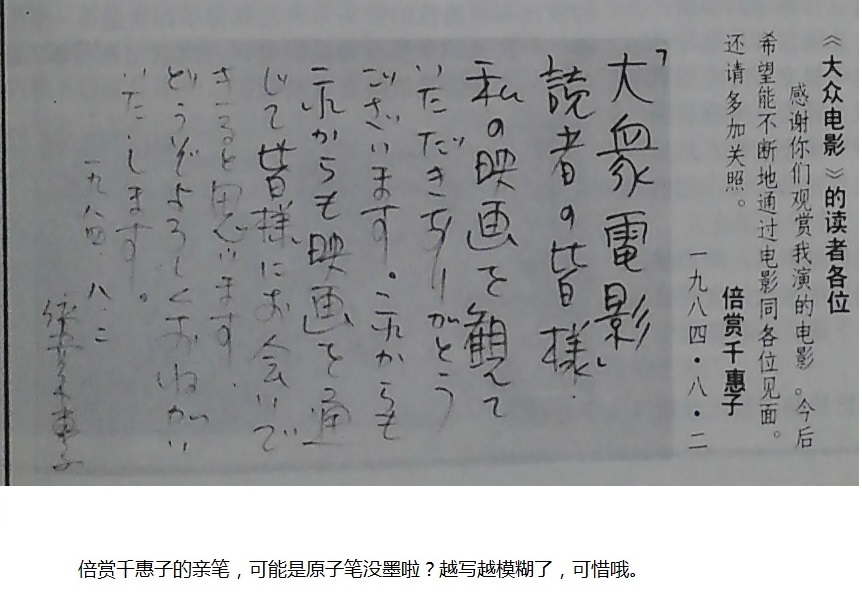 《大众电影》的读者各位
感谢你们观赏我演的电影。今后
希望能不断地通过电影同各位见面。
还请多加关照。
倍赏千惠子
一九八四·八·二
「大衆電影」
読者の皆様.
私の映画を観て
いただきありがとう
ございます。これからも
これからも映画を通
じて皆様にお会いで
きると思います.
どうぞよろしくおねがい
いたします。
一九八四.八.二
倍賞千恵子
倍赏千惠子的亲笔，可能是原子笔没墨啦？越写越模糊了，可惜哦。